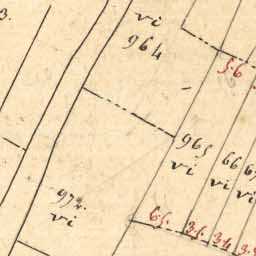 vi
964
3.
5.6
965
vi
66
vi
vi
972.
vi
6.5.
3.5.
3.4